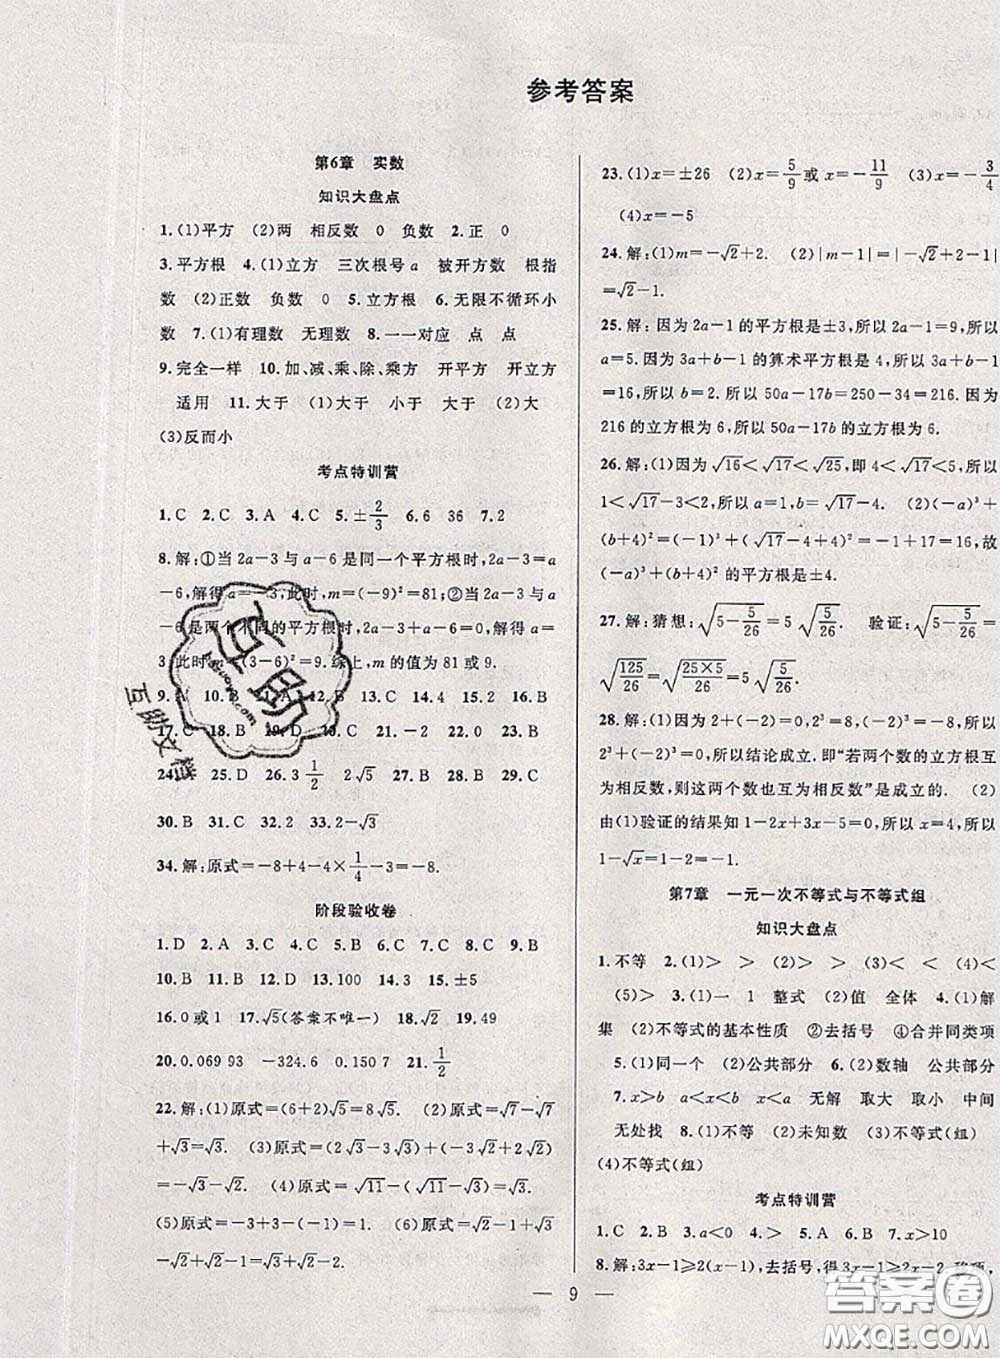 参考答案
第6章 实数
知识大盘点
1.(1)平方 (2)两 相反数 0 负数 2.正 0
3.平方根 4.(1)立方 三次根号a 被开方数 根指
数 (2)正数 负数 0 5.立方根 6.无限不循环小
数 7.(1)有理数 无理数 8.一一对应 点 点
9.完全一样 10.加、减、乘、除、乘方 开平方 开立方
适用 11.大于 (1)大于 小于 大于 (2)大
(3)反而小
考点特训营
1.C 2.C 3.A 4.C 5.±2/3 6.6 36 7.2
8.解:①当2a-3与a-6是同一个平方根时,2a-3=a
-6,解得a=-3,此时,m=(-9)²=81;②当2a-3与a-
6是两个不同的平方根时,2a-3+a-6=0,解得a=
3,此时m=(3-6)²=9.综上,m的值为81或9.
9.A 10.B 11.A 12.D 13.C 14.4 15.2 16.B
17.C 18.B 19.D 20.C 21.-2 22.0 23.B
24. 25.D 26.3 1/2 2√5 27.B 28.B 29.C
30.B 31.C 32.2 33.2-√3
34.解:原式=-8+4-4×1/4-3=-8.
阶段验收卷
1.D 2.A 3.C 4.C 5.B 6.C 7.B 8.C 9.B
10.B 11.B 12.D 13.100 14.4 15.±5
16.0或1 17.√5(答案不唯一) 18.√2 19.49
20.0.069 93 -324.6 0.150 7 21.1/2
22.解:(1)原式=(6+2)√5=8√5. (2)原式=√7-√7
+√3=√3. (3)原式=(2√3-3√3)+(-3√2+2√2)=
-√3-√2. (4)原式=√11-(√11-√3)=√3.
(5)原式=√3-1+3-√3=2. (6)原式=√2-1+√3
-√2+√2-√3=√2-1.
23.(1)x=±26 (2)x=5/9或x=-11/9 (3)x=-3/4
(4)x=-5
24.解:(1)m=-√2+2. (2)|m-1|=|-√2+2-1|
=√2-1.
25.解:因为2a-1的平方根是±3,所以2a-1=9,所以
a=5.因为3a+b-1的算术平方根是4,所以3a+b-1
=16,所以b=2.所以50a-17b=250-34=216.因为
216的立方根为6,所以50a-17b的立方根为6.
26.解:(1)因为√16<√17<√25,即4<√17<5,所以
1<√17-3<2,所以a=1,b=√17-4. (2)(-a)³+
(b+4)²=(-1)³+(√17-4+4)²=-1+17=16,故
(-a)³+(b+4)²的平方根是±4.
27.解:猜想:√(5-5/26)=5√(5/26). 验证:√(5-5/26)=
√(125/26)=√(25×5/26)=5√(5/26).
28.解:(1)因为2+(-2)=0,2³=8,(-2)³=-8,所以
8+(-8)=0,所以结论成立.即“若两个数的立方根互
为相反数,则这两个数也互为相反数”是成立的. (2)
由(1)验证的结果知1-2x+3x-5=0,所以x=4,所以
1-√x=1-2=-1.
第7章 一元一次不等式与不等式组
知识大盘点
1.不等 2.(1)> > (2)> > (3)< < (4)<
(5)> 3.(1)一 1 整式 (2)值 全体 4.(1)解
集 (2)不等式的基本性质 ②去括号 ④合并同类项
5.(1)同一个 (2)公共部分 6.(2)数轴 公共部分
7.x>b a<x<b x<a 无解 取大 取小 中间
无处找 8.(1)不等 (2)未知数 (3)不等式(组)
(4)不等式(组)
考点特训营
1.C 2.B 3.a<0 4.> 5.A 6.B 7.x>10
8.解:3x-1≥2(x-1),去括号,得3x-1≥2x-2,移项,
— 9 —
互助
互助文档
答案圈
MXQE.COM